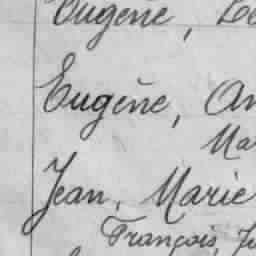 Eugène,
Eugène, An
Ma
Jean, Marie
François, J